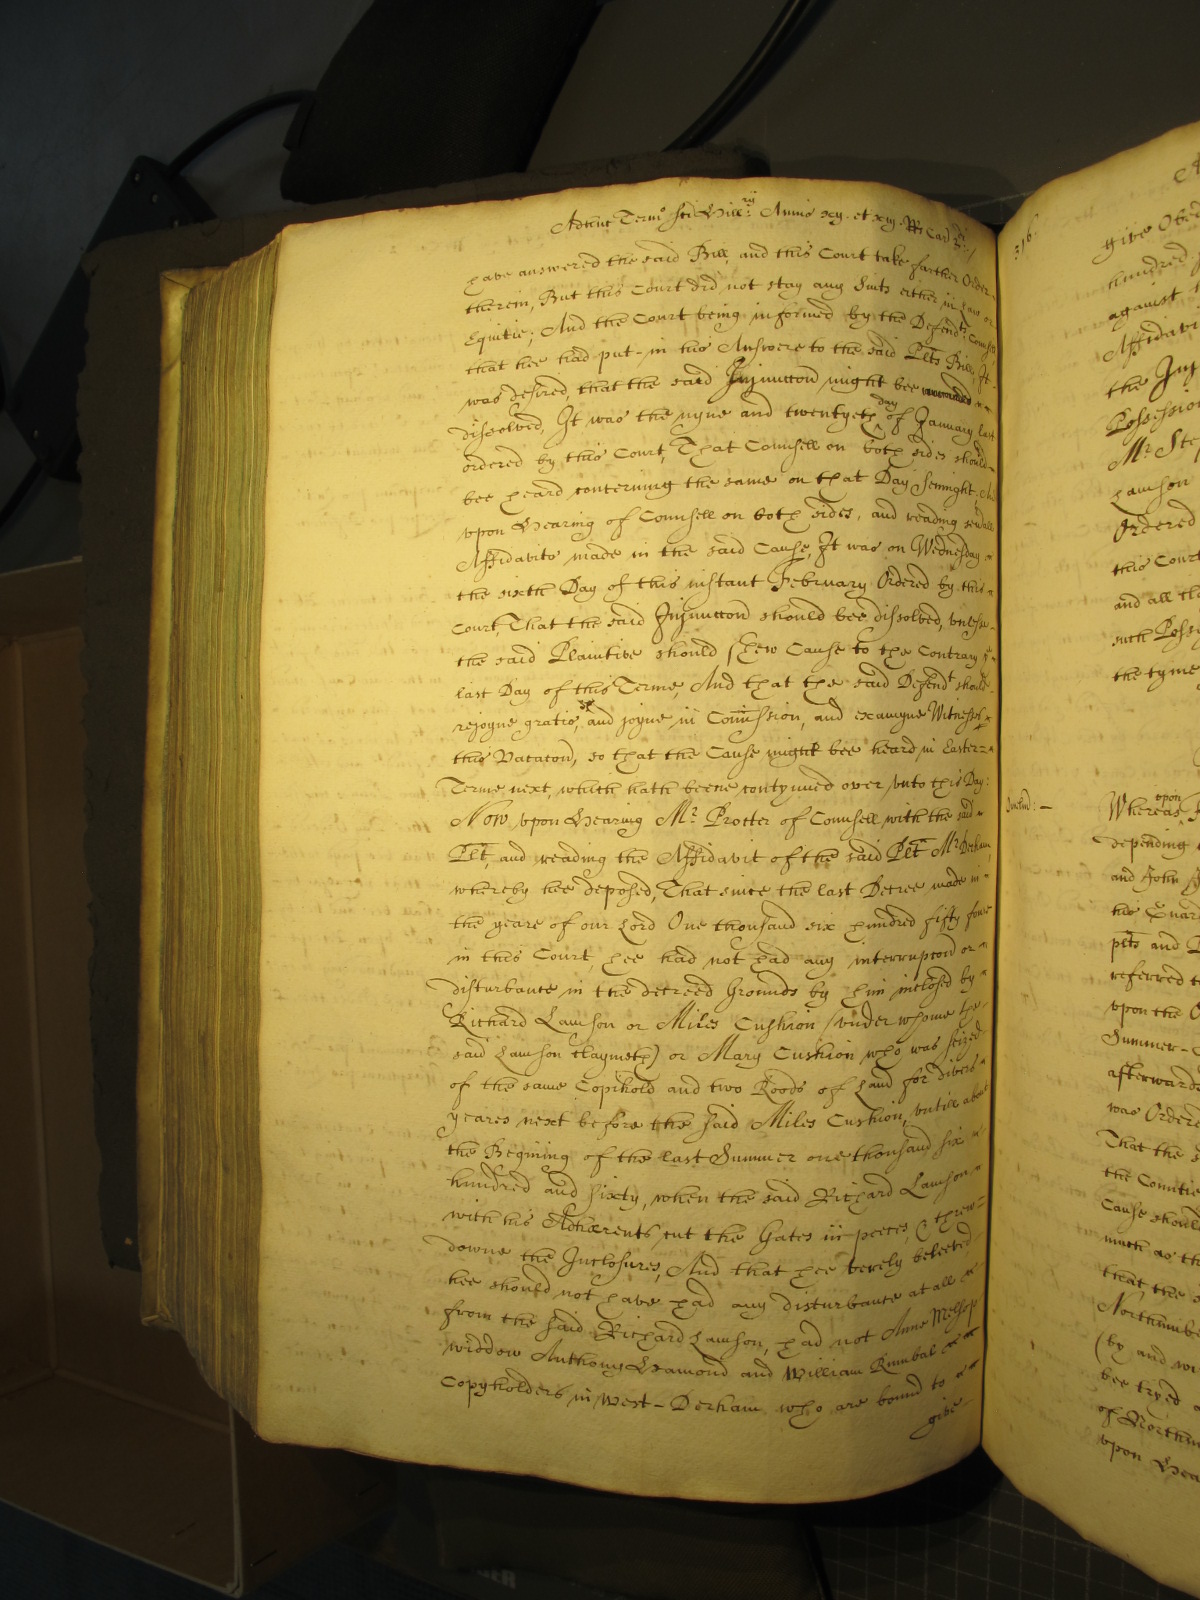 Adhuc Term° Sti Hill:rij Annis xij. et xiij. Rs Car: 2di
have answered the said Bill, and this Court take further Order
therein, But this Court did not stay any Suits either in Law or
Equitie; And the Court being informed by the Defend:ts Counsell
that hee had put-in his Answere to the said Plts Bill, It
was desired, that the said Injunccon might bee
dissolved, It was the nyne and twentyeth day of January last
ordered by this Court, That Counsell on both sides should
bee heard concerning the same on that Day Sennight, And
vpon Hearing of Counsell on both sides, and reading severall
Affidavits made in the said Cause, It was on Wednesday
the sixth Day of this instant February Ordered by this
Court, That the said Injunccon should bee dissolved, vnlesse
the said Plaintive should shew Cause to the Contrary
last Day of this Terme, And that the said Defendt should
rejoyne gratis, and joyne in Comission, and examyne Witnesses
this Vacacon, so that the Cause might bee heard in Easter
Terme next, which hath beene contynued over vnto this Day:
Now vpon Hearing Mr. Procter of Counsell with the said
Plt, and reading the Affidavit of the said Plt Mr Derham,
whereby hee deposed, That since the last Decree made in
the yeare of our Lord One thousand six hundred fifty foure
in this Court, hee had not had any interrupcon or
disturbance in the decreed Grounds by him inclosed by
Richard Lawson or Miles Cushion (vnder whome the
said Lawson claymeth) or Mary Cushion who was seized
of the same Copihold and two Roods of Land for divers
yeares next before the said Miles Cushion, vntill about
the Begining of the last Summer one thousand six
hundred and sixty, when the said Richard Lawson
with his Adhærents, cut the Gates in peeces, & threw
downe the Inclosures, And that hee verely beleeved
hee should not have had any disturbance at all
from the said Richard Lawson, had not Anne Mellsop
widdow Anthony Hamond and William Rumbal
Copyholders in West-Derham who are bound to
give
316.
give
hundred
against
Affidavi
the Inj
Possession
Mr Ste
Lawson
Ordered
this Court
and all th
such Poss
the tyme
Whereas vpon
depending
and John
his Guar
plts and
referred t
vpon the O
Summer-
afterwards
was Ordered
That the s
the Countie
Cause should
much as th
that the s
Northumbe
(by and wi
bee tryed
of Northum
vpon Hea